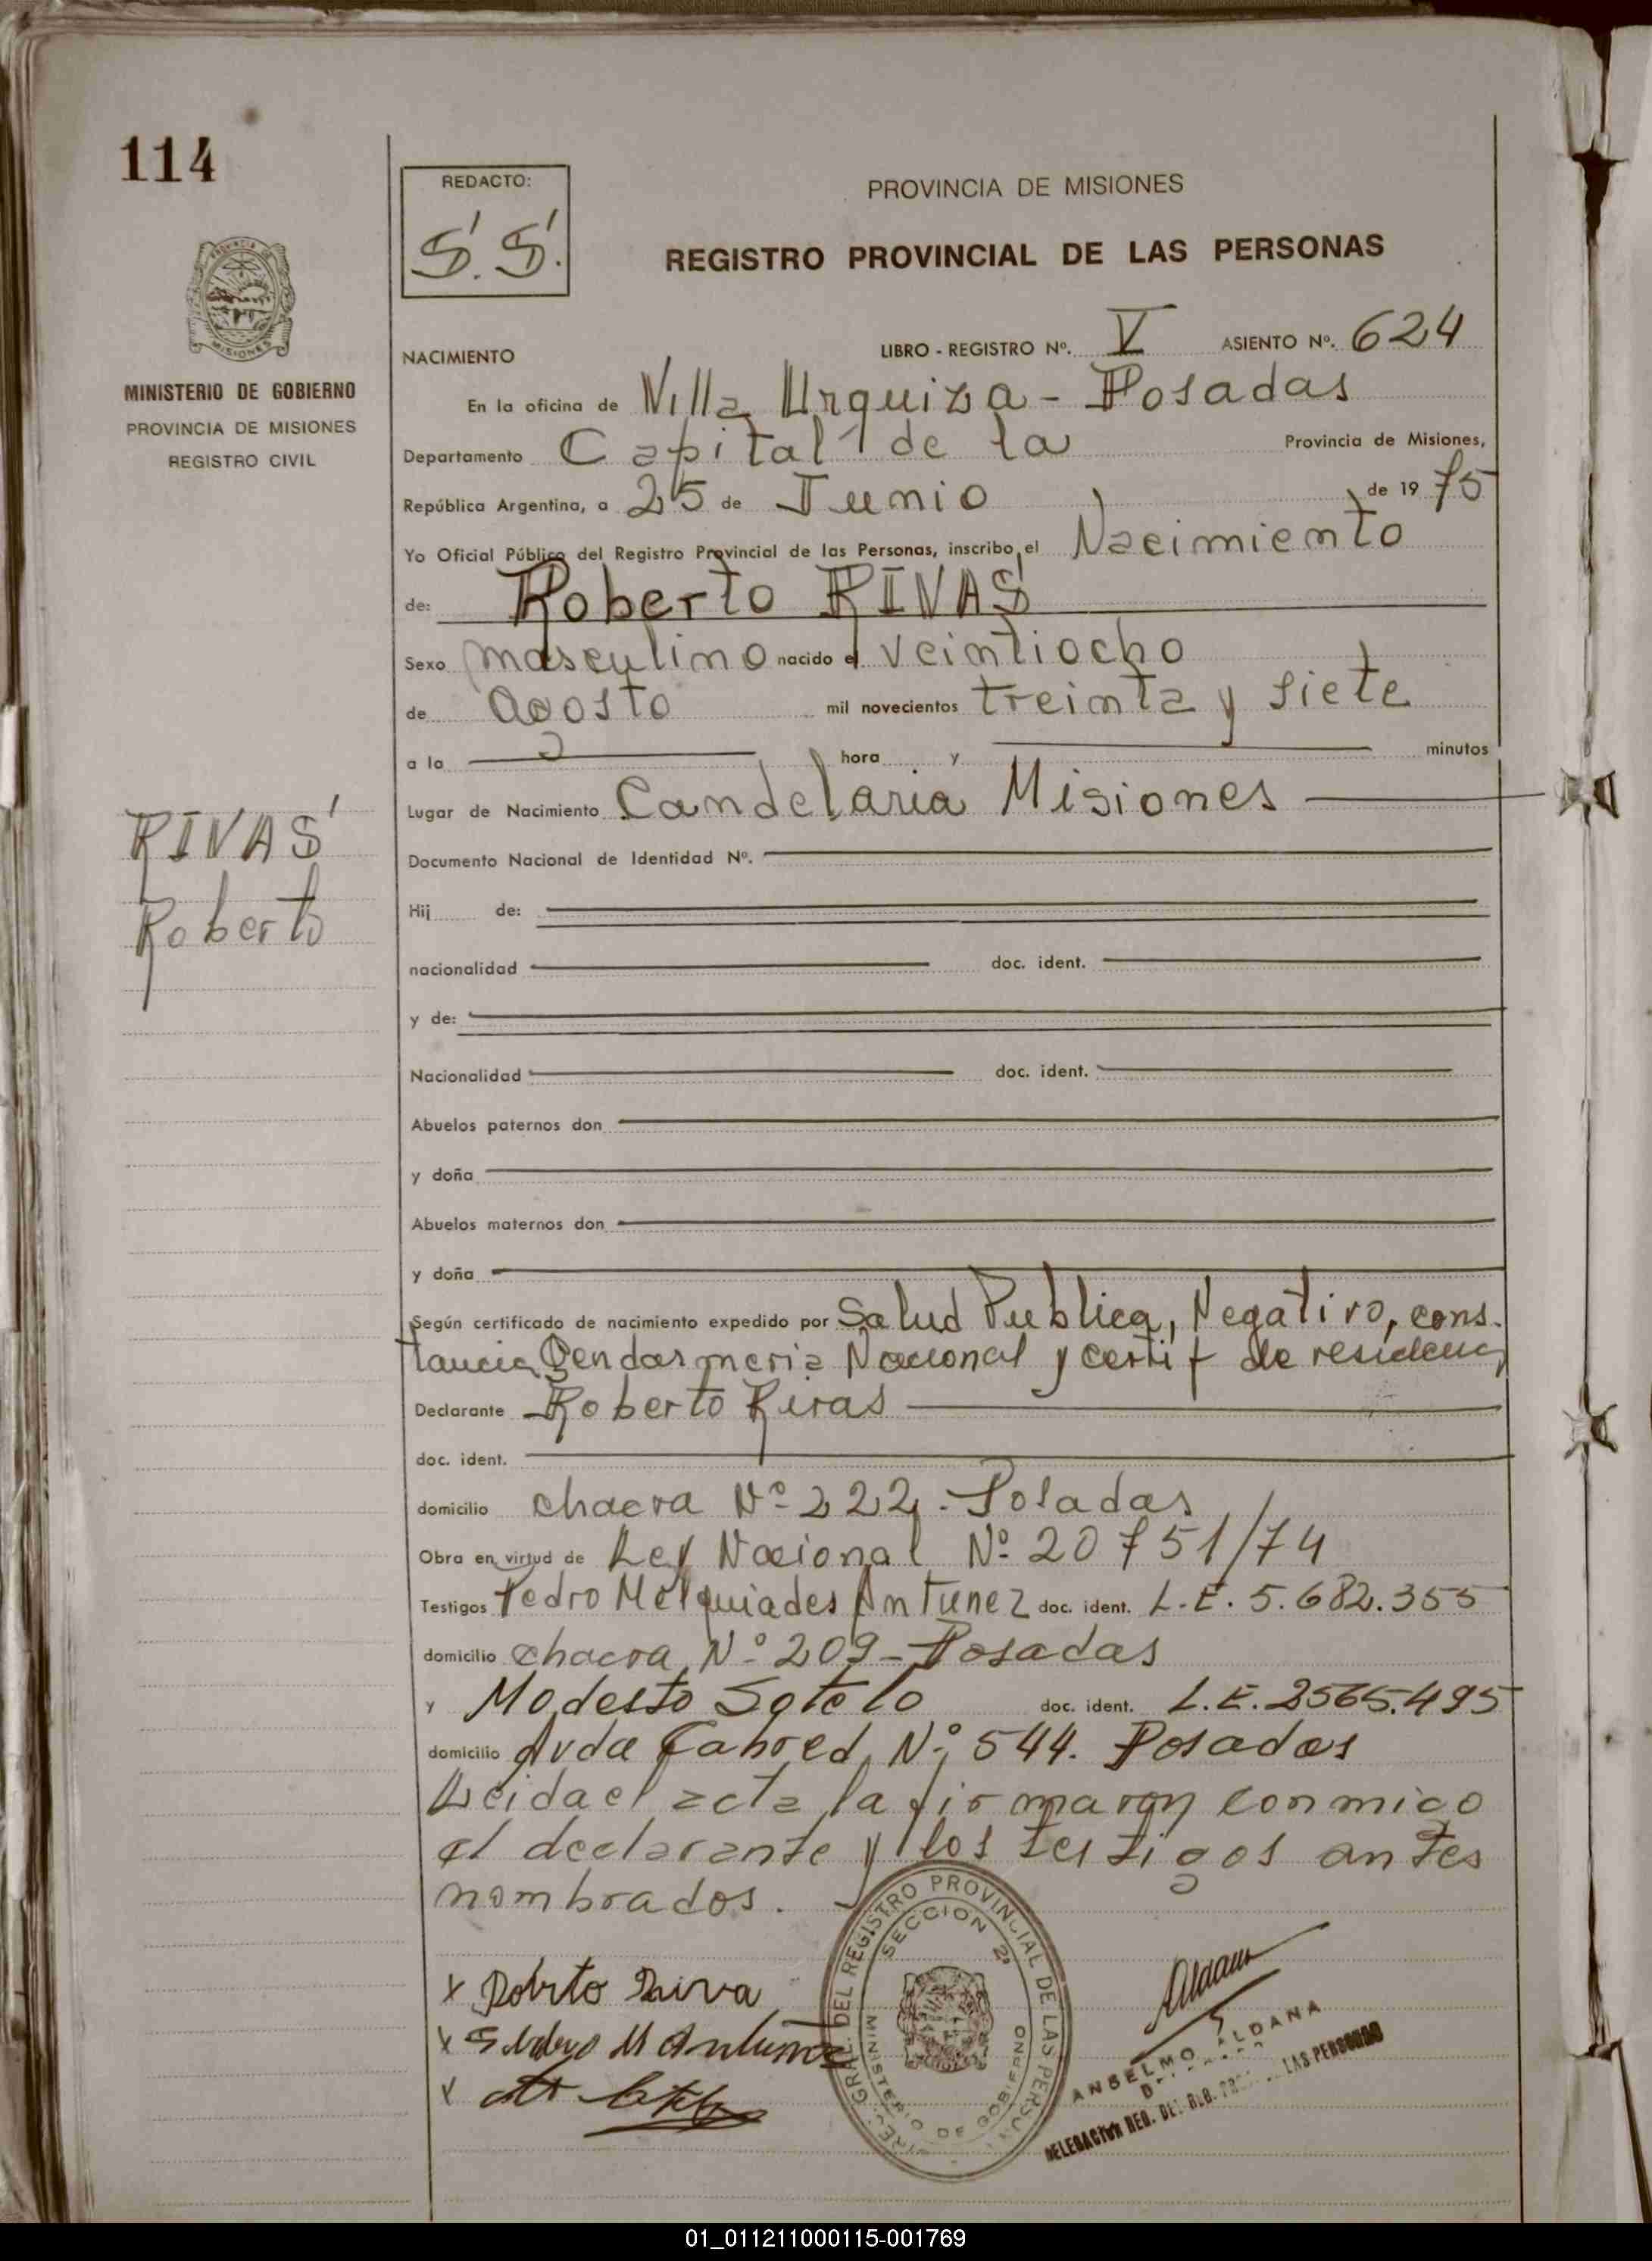 114
REDACTO:
S. S.
PROVINCIA DE MISIONES
REGISTRO PROVINCIAL DE LAS PERSONAS
MINISTERIO DE GOBIERNO
PROVINCIA DE MISIONES
REGISTRO CIVIL
NACIMIENTO LIBRO - REGISTRO Nº. V ASIENTO Nº. 624
En la oficina de Villa Urquiza - Posadas
Departamento Capital de la Provincia de Misiones,
República Argentina, a 25 de Junio de 1975
Yo Oficial Público del Registro Provincial de las Personas, inscribo el Nacimiento
de: Roberto RIVAS
Sexo masculino nacido el veintiocho
de agosto mil novecientos treinta y siete
a la hora y minutos
Lugar de Nacimiento Candelaria Misiones
RIVAS
Roberto
Documento Nacional de Identidad Nº.
Hij de:
nacionalidad doc. ident.
y de:
Nacionalidad doc. ident.
Abuelos paternos don
y doña
Abuelos maternos don
y doña
Según certificado de nacimiento expedido por Salud Publica, Negativo, cons-
tancia Gendarmeria Nacional y certif de residenc
Declarante Roberto Rivas
doc. ident.
domicilio chacra Nº 222 - Posadas
Obra en virtud de Ley Nacional Nº 20751/74
Testigos Pedro Melquiades Antunez doc. ident. L.E. 5.682.355
domicilio chacra Nº 209 - Posadas
y Modesto Sotelo doc. ident. L.E. 2565.495
domicilio Avda Cabred Nº 544. Posadas
Leida el acta la firmaron conmigo
el declarante y los testigos antes
nombrados.
DEL REGISTRO PROVINCIAL DE LAS PERSONAS
SECCION 2ª
MINISTERIO DE GOBIERNO
x Roberto Riva
x Pedro M Antunez
x
Aldana
ANSELMO ALDANA
DELEGACION REG. DEL REG. LAS PERSONAS
01_011211000115-001769